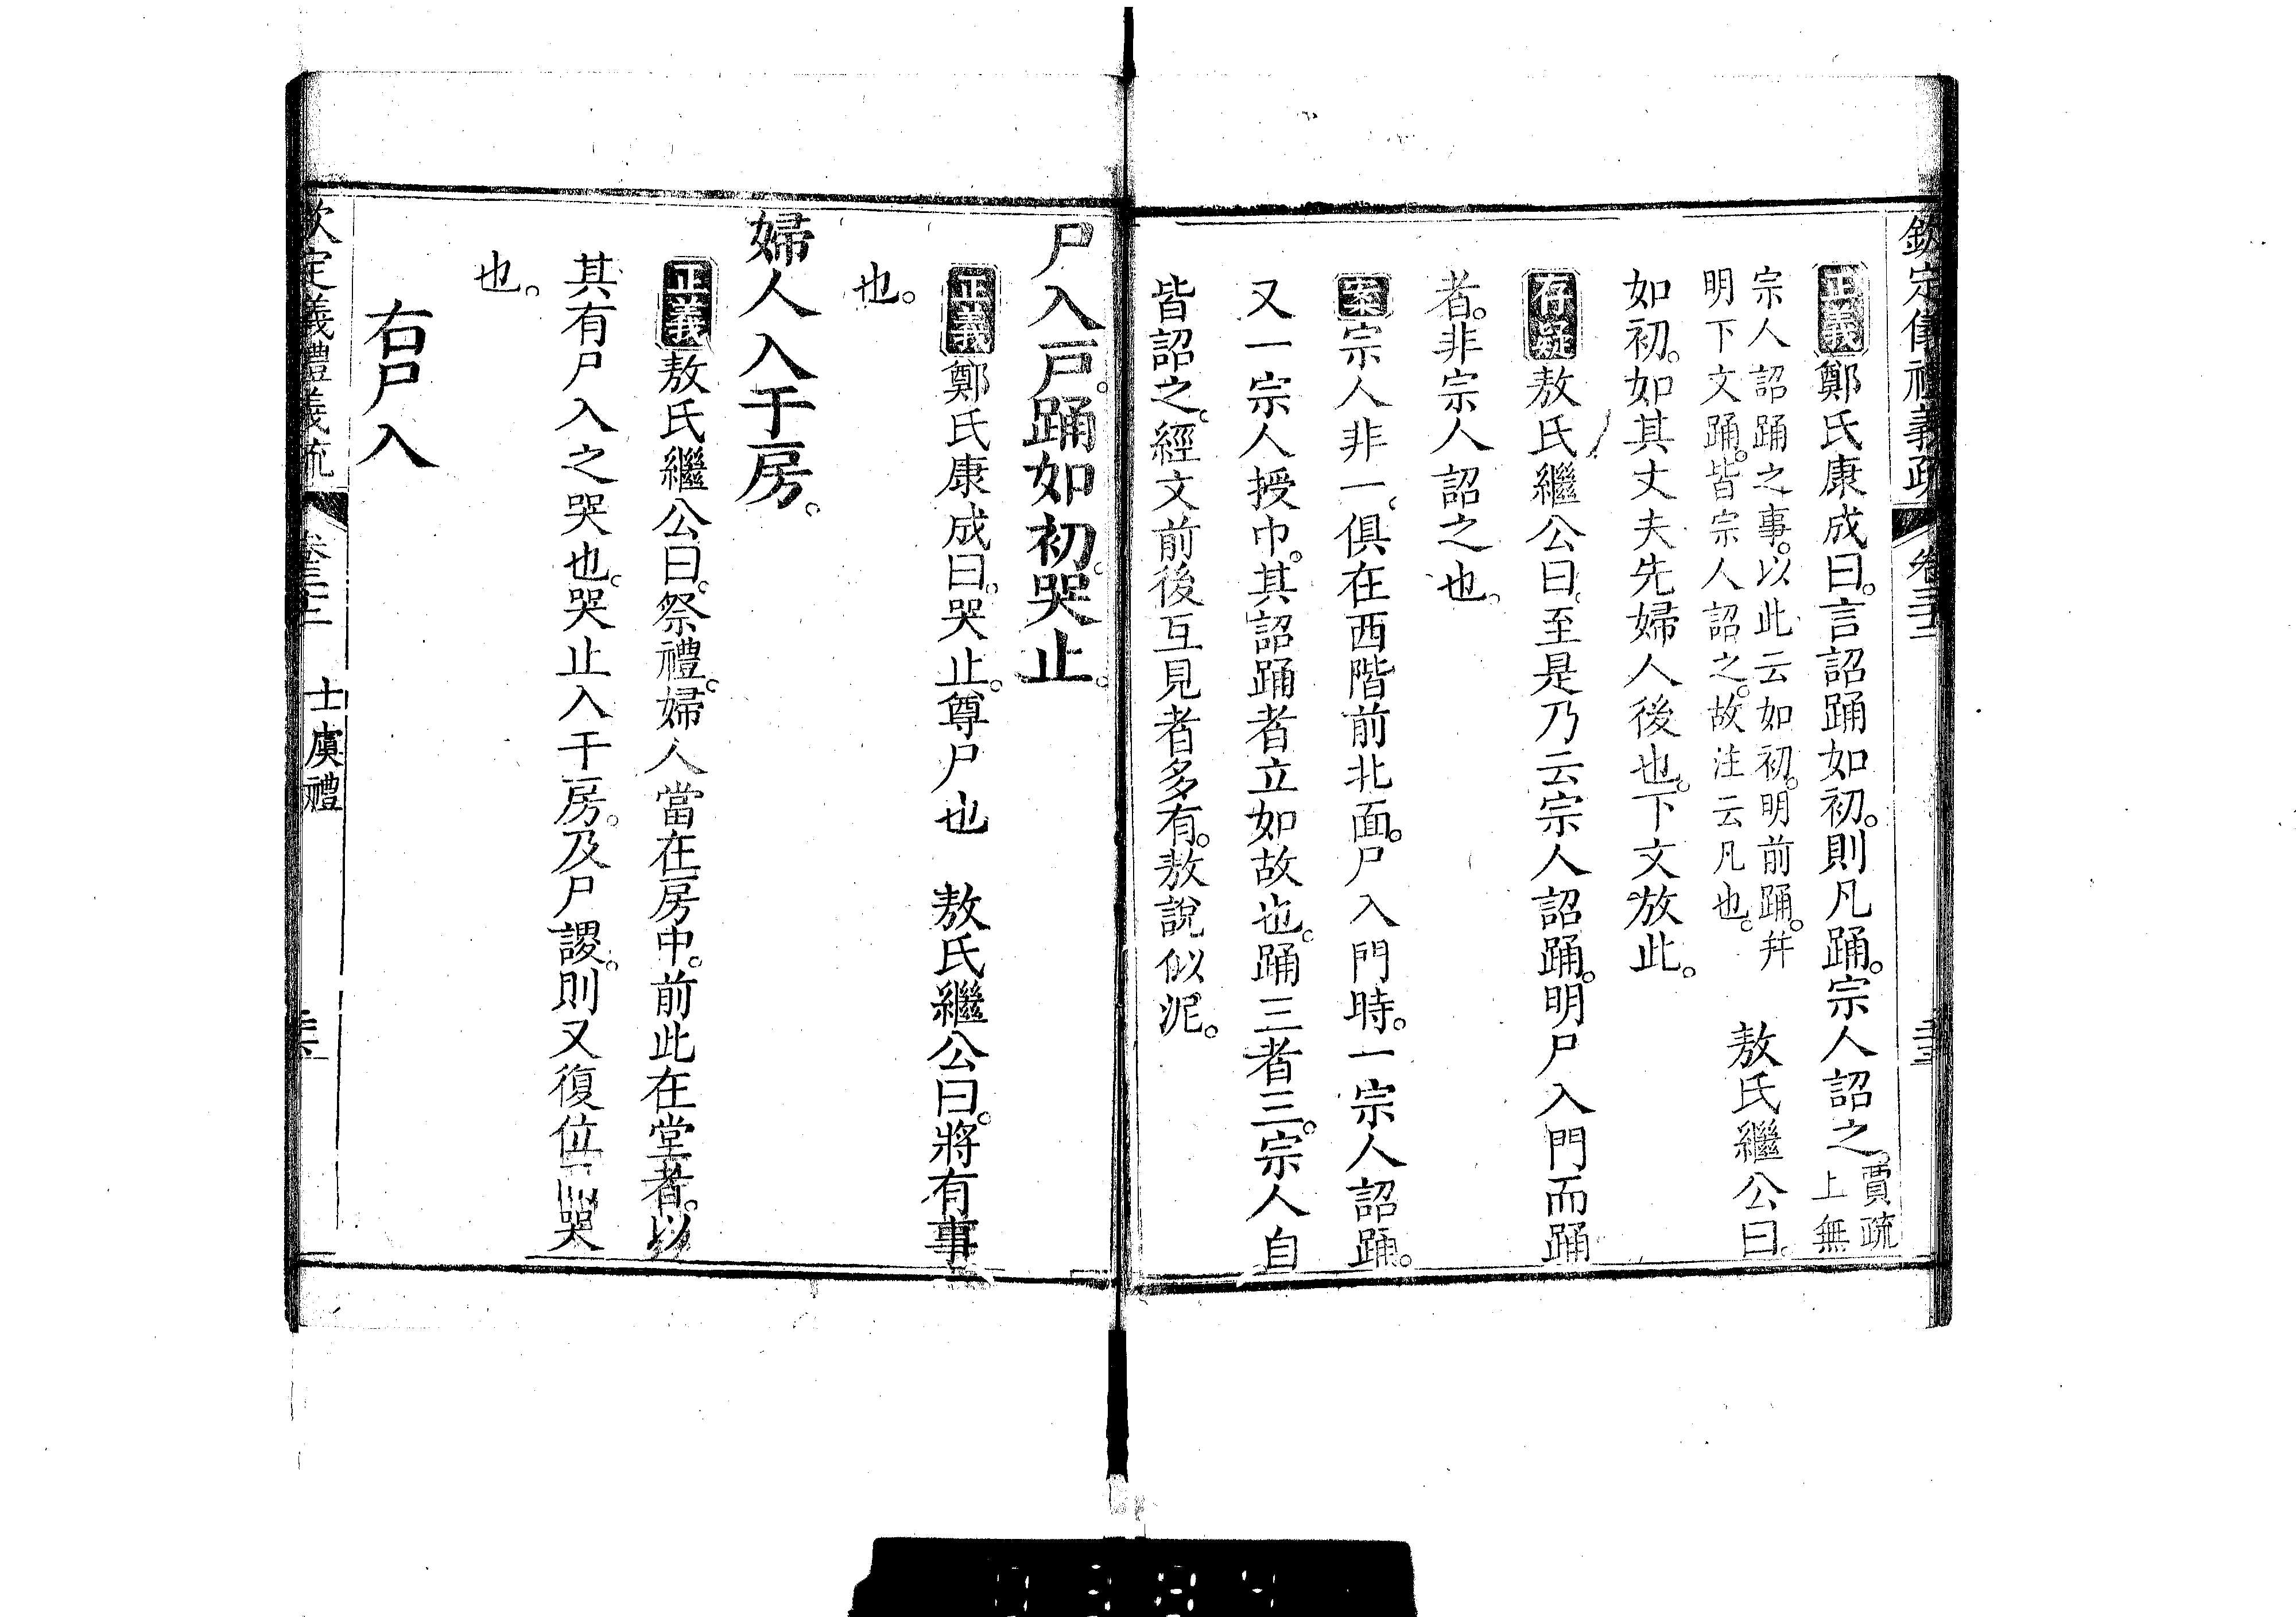 欽定儀禮義疏 卷三十二
正義鄭氏康成曰。言詔踊如初。則凡踊。宗人詔之。賈疏上無
宗人詔踊之事。以此云如初。明前踊。幷
明下文踊。皆宗人詔之。故注云凡也。 敖氏繼公曰。
如初。如其丈夫先婦人後也。下文放此。
存疑敖氏繼公曰。至是乃云宗人詔踊。明尸入門而踊
者。非宗人詔之也。
案宗人非一。俱在西階前北面。尸入門時。一宗人詔踊。
又一宗人授巾。其詔踊者立如故也。踊三者三。宗人自
皆詔之。經文前後互見者多有。敖說似泥。
尸入戶。踊如初。哭止。
正義鄭氏康成曰。哭止。尊尸也 敖氏繼公曰。將有事
也。
婦人入于房。
正義敖氏繼公曰。祭禮。婦人當在房中。前此在堂者。以
其有尸入之哭也。哭止入于房。及尸謖。則又復位哭
也。
右尸入
欽定義禮義疏 士虞禮